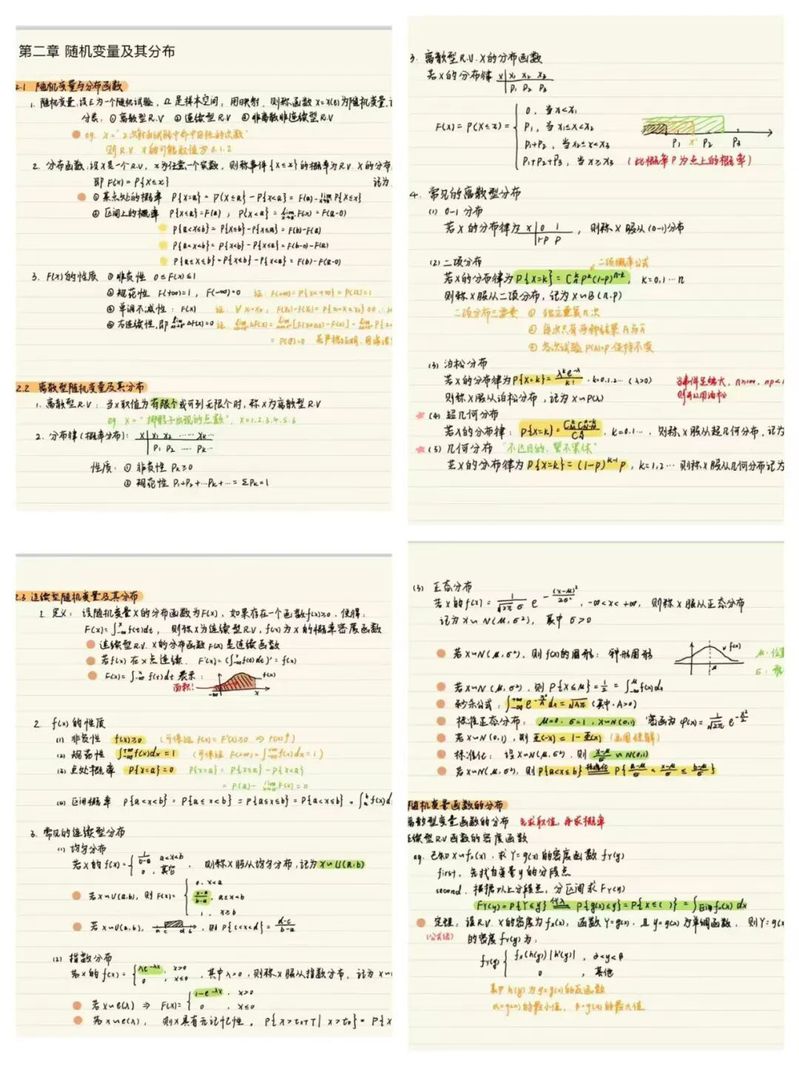 第二章 随机变量及其分布
2.1 随机变量与分布函数
1. 随机变量:设E为一个随机试验, Ω 是样本空间, 用映射, 则称函数 X=X(e)为随机变量
分类: ① 离散型 R.V ② 连续型 R.V ③ 非离散非连续型 R.V
eg. X="2次射击试验中命中目标的次数"
则 R.V. X的可能取值为 0.1.2
2. 分布函数:设X是一个R.V, x为任意一个实数, 则称事件{X≤x}的概率为R.V. X的分布
即 F(x)=P{X≤x} 记为
① 某点处的概率 P{X=a}=P{X≤a}-P{X<a}=F(a)-
② 区间上的概率 P{X≤a}=F(a), P{X<a}= F(x)=F(a-0)
P{a<X≤b}=P{X≤b}-P{X≤a}=F(b)-F(a)
P{a<X<b}=P{X<b}-P{X≤a}=F(b-0)-F(a)
P{a≤X≤b}=P{X≤b}-P{X<a}=F(b)-F(a-0)
3. F(x)的性质 ① 非负性 0≤F(x)≤1
② 规范性 F(+∞)=1, F(-∞)=0 证: F(+∞)=P{X≤+∞}=P(Ω)=1
③ 单调不减性: F(x) 证
④ 右连续性,即
=P(Ø)=0
2.2 离散型随机变量及其分布
1. 离散型R.V: 当X取值为有限个或可列无限个时, 称X为离散型R.V
eg. X="掷骰子出现的点数", X=1.2.3.4.5.6
2. 分布律(概率分布): X | x₁ x₂ … xₖ …
P | p₁ p₂ … pₖ …
性质: ① 非负性 Pₖ≥0
② 规范性 P₁+P₂+…Pₖ+…=ΣPₖ=1
3. 离散型 R.V. X的分布函数
若X的分布律 X | x₁ x₂ x₃
P₁ P₂ P₃
0, 当x<x₁
F(x)=P(X≤x)= P₁, 当x₁≤x<x₂
P₁+P₂, 当x₂≤x<x₃
P₁+P₂+P₃, 当x≥x₃ (此概率P为点上的概率)
P₁ x P₂ P₃
4. 常见的离散型分布
(1) 0-1 分布
若X的分布律为 X | 0 1
1-P P , 则称X服从(0-1)分布
(2) 二项分布 二项概率公式
若X的分布律为 P{X=k}=Cₙᵏpᵏ(1-p)ⁿ⁻ᵏ, k=0,1…n
则称X服从二项分布, 记为 X~B(n.p)
二项分布三要素 ① 独立重复n次
② 每次只有两种结果 A与Ā
③ 每次试验 P(A)=p 保持不变
(3) 泊松分布
若X的分布律为 P{X=k}=λᵏe^(-λ)/k!, k=0.1.2… (λ>0)
则称X服从泊松分布, 记为 X~P(λ)
(4) 超几何分布
若X的分布律: P{X=k}= , k=0.1…, 则称X服从超几何分布,记为
(5) 几何分布 "不达目的,誓不罢休"
若X的分布律为 P{X=k}=(1-p)ᵏ⁻¹p, k=1,2… 则称X服从几何分布记为
2.3 连续型随机变量及其分布
1. 定义: 设随机变量X的分布函数为F(x), 如果存在一个函数f(x)≥0, 使得:
F(x)=∫f(t)dt, 则称X为连续型R.V, f(x)为X的概率密度函数
连续型R.V. X的分布函数F(x)是连续函数
若f(x)在X点连续, F'(x)=(∫f(t)dt)'=f(x)
F(x)=∫f(t)dt 表示: f(x)
面积!
-∞ x
2. f(x)的性质
(1) 非负性 f(x)≥0
(2) 规范性 ∫f(x)dx=1
(3) 点处概率 P{X=a}=0 P{X=a}=P{X≤a}-P{X<a}
(4) 区间概率 P{a<X<b}=P{a≤X<b}=P{a≤X≤b}=P{a<X≤b}=∫f(x)d
3. 常见的连续型分布
(1) 均匀分布
若X的f(x)= 1/(b-a), a<x<b
0, 其它 , 则称X服从均匀分布,记为X~U(a,b)
若X~U(a,b), 则 F(x)= 0, x<a
(x-a)/(b-a), a≤x<b
1, x≥b
若X~U(a,b), a c d b, 则 P{c<X<d}=(d-c)/(b-a)
(2) 指数分布
若X的f(x)= λe^(-λx), x>0
0, x≤0 , 其中λ>0, 则称X服从指数分布, 记为 X~
若X~e(λ) ⇒ F(x)= 1-e^(-λx), x>0
0, x≤0
若X~e(λ), 则X具有无记忆性, P{X>t₀+T|X>t₀}=P{X
(3) 正态分布
若X的f(x)=1/(√2π σ) e^(-(x-μ)²/2σ²), -∞<x<+∞, 则称X服从正态分布
记为 X~N(μ,σ²), 其中 σ>0
若X~N(μ,σ²), 则f(x)的图形: 钟形图形 f(x)
μ: 位置
σ:
若X~N(μ,σ²), 则 P{X≤μ}=1/2=∫f(x)dx
秒杀公式: ∫e dx= (其中, A>0)
标准正态分布: μ=0, σ=1, X~N(0,1) 密函为 φ(x)=1/√2π e^(-x²/2)
若X~N(0,1), 则 Φ(-x)=1-Φ(x) (画图理解)
标准化: 设X~N(μ,σ²), 则 (X-μ)/σ ~N(0,1)
若X~N(μ,σ²), 则P{a<X≤b} 标准化 P{(a-μ)/σ<(X-μ)/σ≤(b-μ)/σ}
随机变量函数的分布
离散型变量函数的分布 先求取值, 再求概率
连续型R.V函数的密度函数
eg. 已知X~fₓ(x), 求Y=g(x)的密度函数 fY(y)
first, 先找自变量y的分段点
second, 根据以上分段点, 分区间求 FY(y)
FY(y)=P{Y≤y} 代入 P{g(x)≤y}=P{X≤( )}=∫ fₓ(x)dx
定理: 设R.V. X的密度为fₓ(x), 函数Y=g(x), 且y=g(x)为单调函数, 则Y=g(x
(公式法) 的密度fY(y)为:
fY(y)= fₓ(h(y))|h'(y)|, α<y<β
0 , 其他
其中h(y)为y=g(x)的反函数
α=g(x)的最小值, β=g(x)的最大值